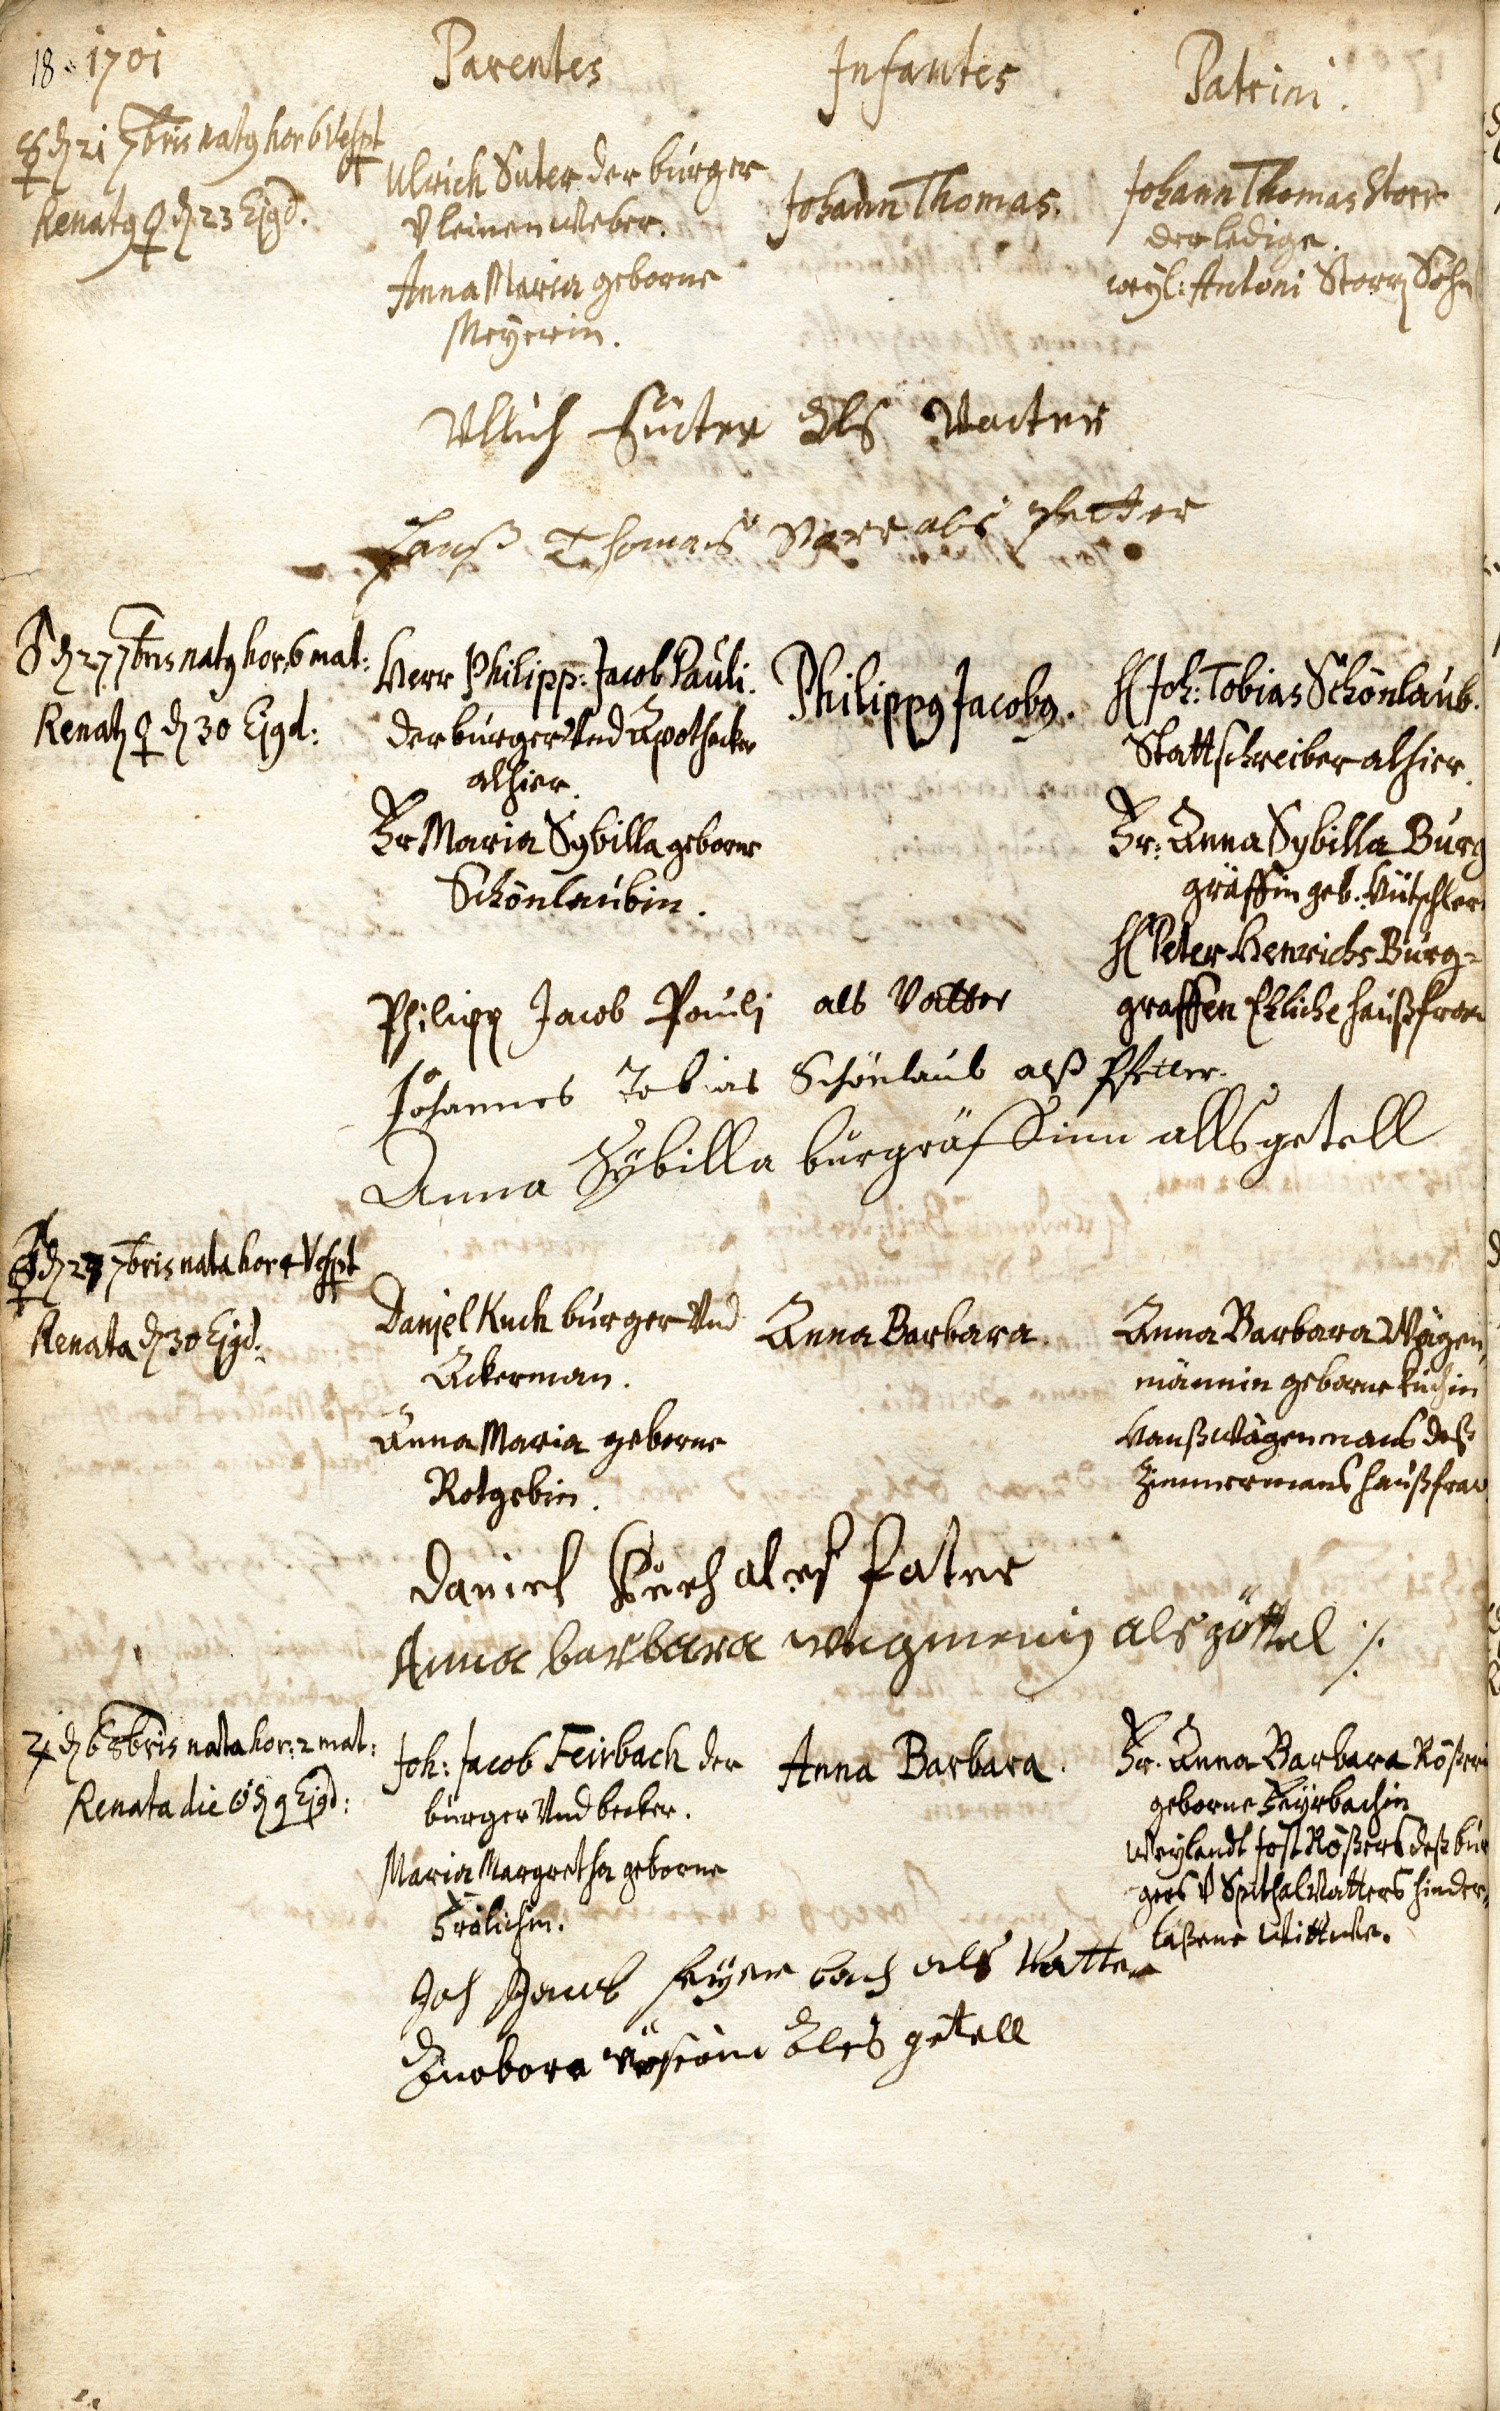 18. 1701
Parentes
Infantes
Patrini.
☿ d 21 7bris natg hor 6 Vespt
Renatg ♀ d 23 Ejgd.
Ulrich Suter der burger
V leinenweber.
Anna Maria geborne
Meyerin.
Johann Thomas.
Johann Thomas Storr
der ledige.
weyl: Antoni Storrs Sohn
Ullrich Suter Als Vatter
Hanß Thomas Storr als Petter
♂ d 27 7bris natg hor: 6 mat:
Renatg ♀ d 30 Ejgd:
Herr Philipp: Jacob Pauli.
der burger Vnd Apothecker
alhier.
Fr Maria Sybilla geborne
Schönlaubin.
Philippg Jacobg.
H Joh: Tobias Schönlaub.
Stattschreiber alhier.
Fr: Anna Sybilla Burg
gräffin geb.
H Peter Henrichs Burg=
graffen Ehliche haußfraw
Philipp Jacob Pauli als Vatter
Johannes Tobias Schönlaub alß Pfetter.
Anna Sybilla burgräffinn alls getell
d 27 7bris nata hor 4 Vespt
Renata d 30 Ejgd:
Daniel Kuch burger Vnd
Ackerman.
Anna Maria geborne
Rotgebin.
Anna Barbara.
Anna Barbara Wägen
männin geborne Kuchin
Hanß Wägenmans deß
Zimmermans haußfraw
Daniel Kuch als fater
Anna barbara wegmenin als göttel
♃ d 6 8bris nata hor: 2 mat:
Renata die ☉ d 9 Ejgd:
Joh: Jacob Feirbach der
burger Vnd becker.
Maria Margretha geborne
Frölichin.
Anna Barbara.
Fr. Anna Barbara Rößerin
geborne Feyrbachin
Weylandt Jost Rößers deß bur
gers V Spithal Vatters hinder,
laßene Wittwe.
Joh Jacob feyer bach als Vatter
als getell